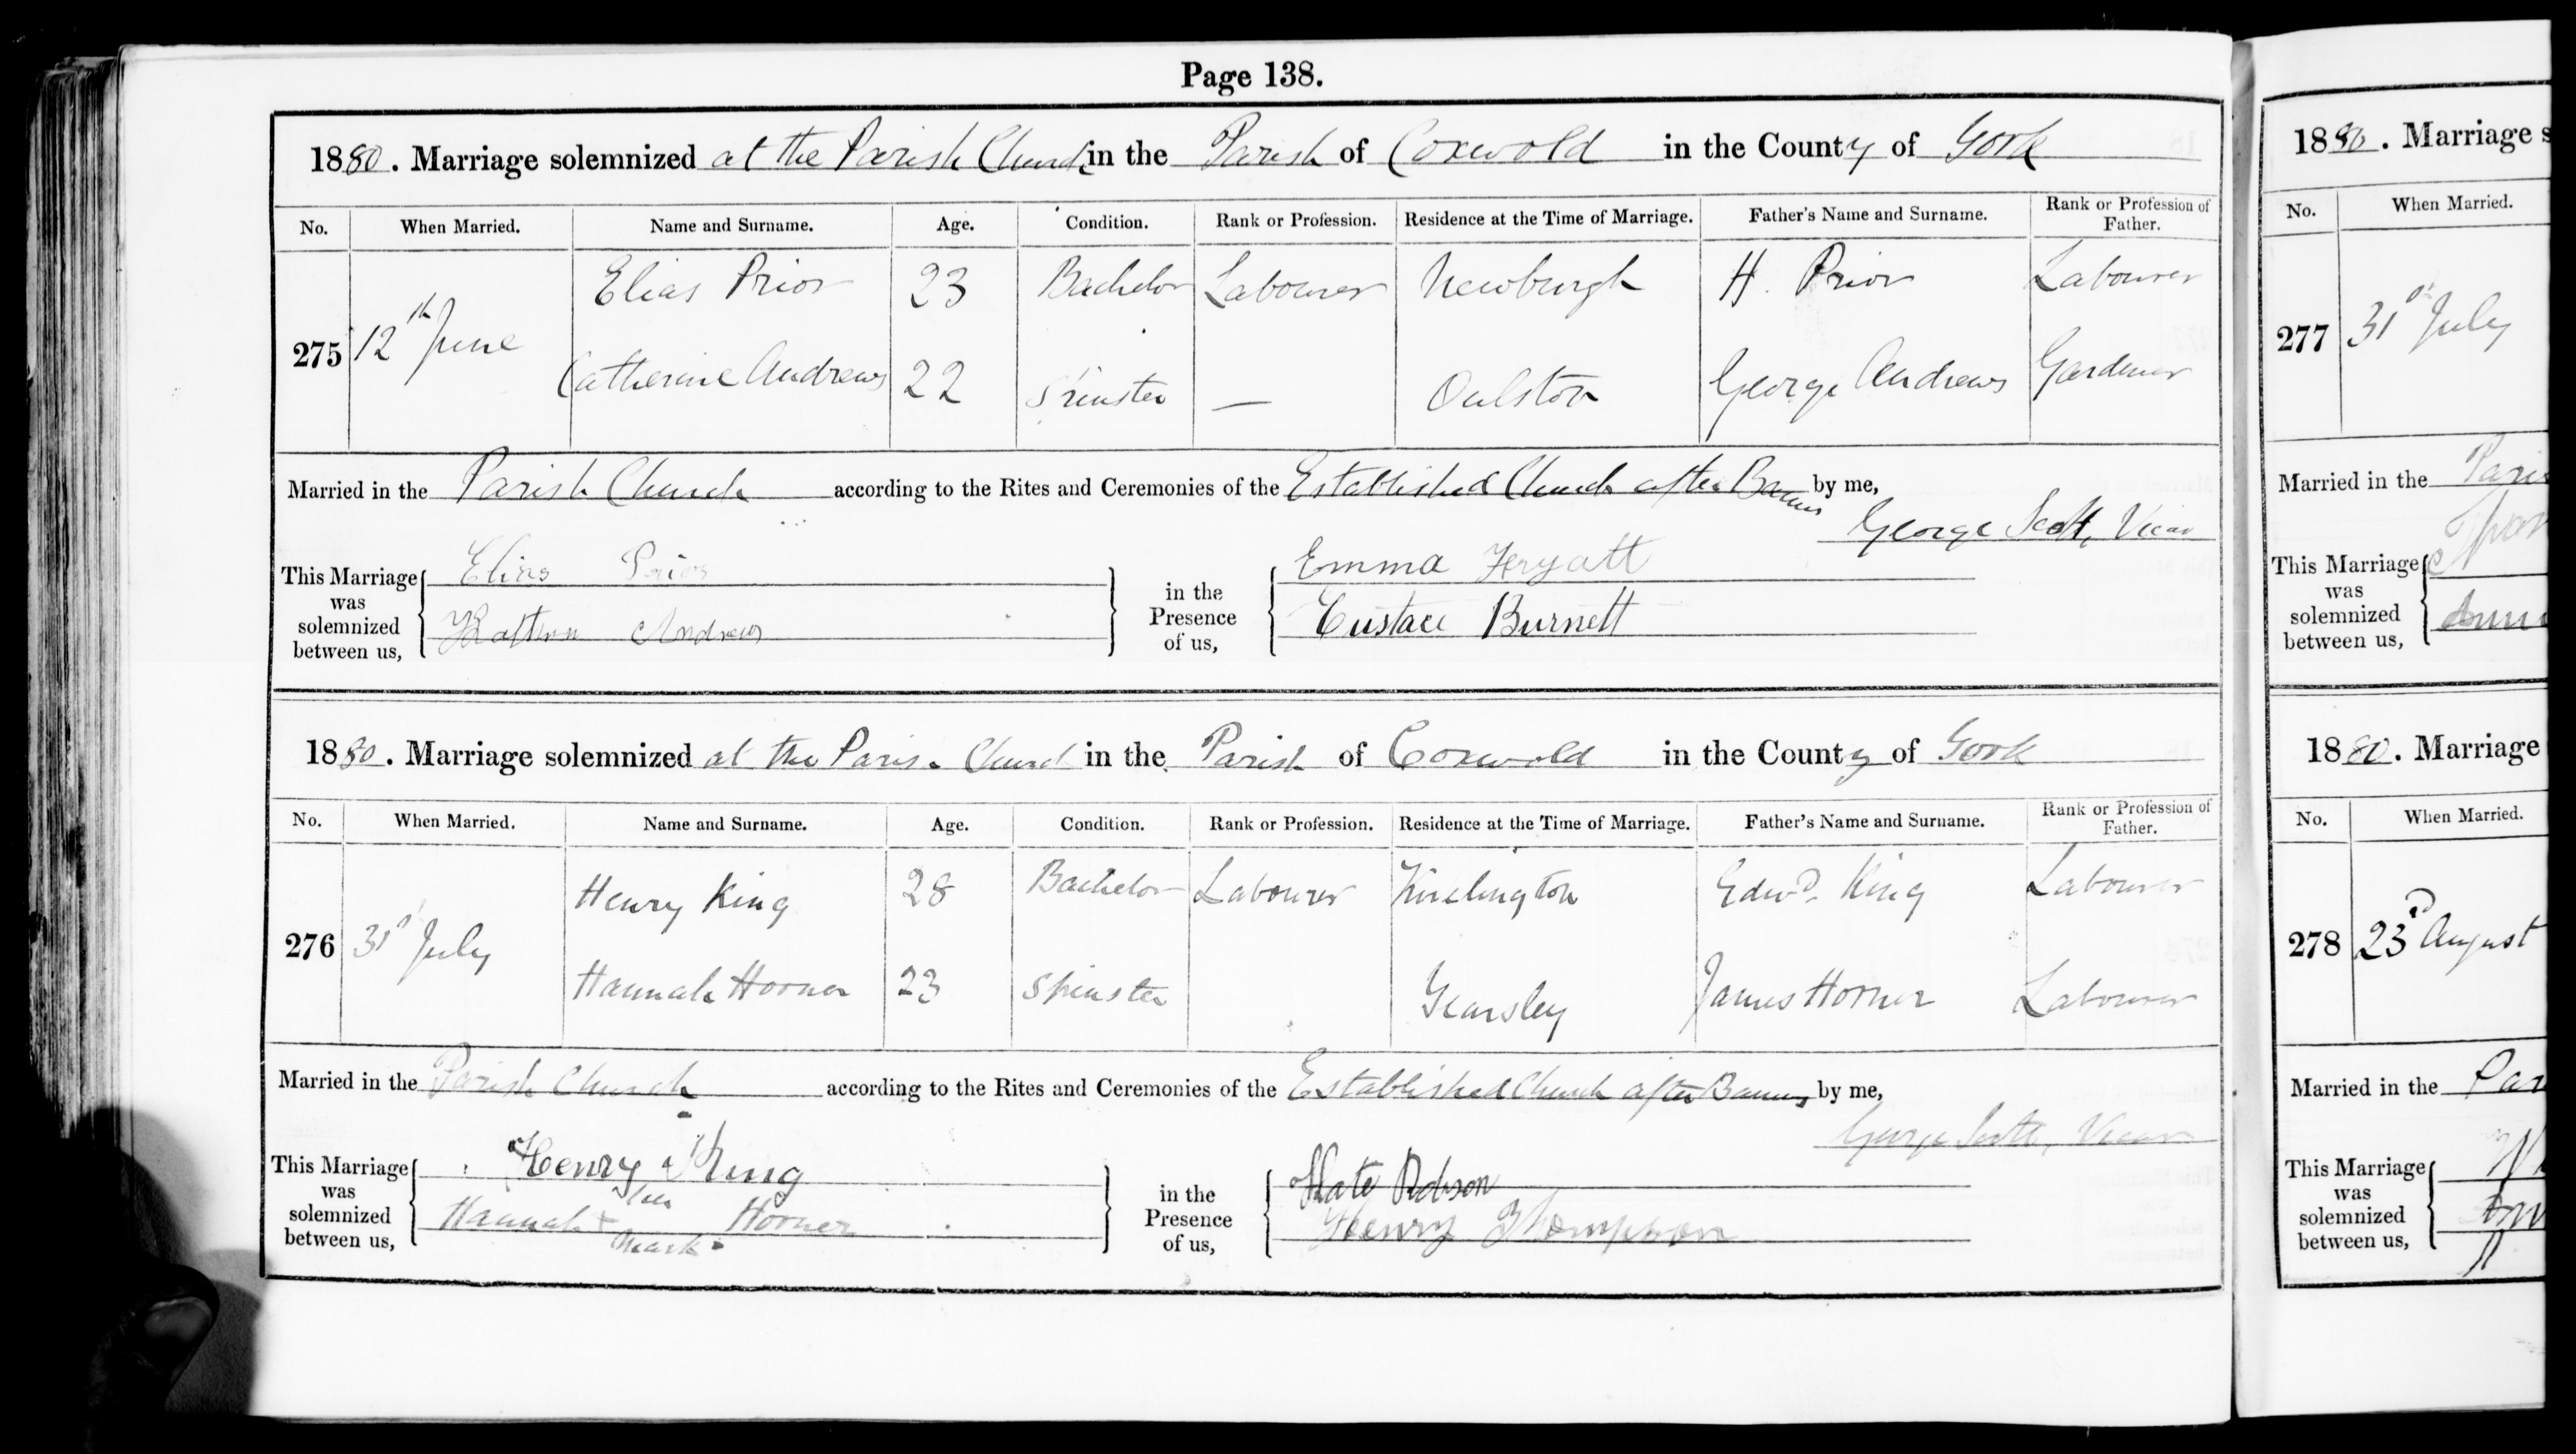 Page 138.
1880. Marriage solemnized at the Parish Church in the Parish of Coxwold in the County of York
No. When Married. Name and Surname. Age. Condition. Rank or Profession. Residence at the Time of Marriage. Father's Name and Surname. Rank or Profession of Father.
Elias Prior 23 Bachelor Labourer Newburgh H. Prior Labourer
275 12th June
Catherine Andrews 22 Spinster — Oulston George Andrews Gardener
Married in the Parish Church according to the Rites and Ceremonies of the Established Church after Banns by me,
George Scott, Vicar
This Marriage was solemnized between us, Elias Prior in the Presence of us, Emma Fryatt
Andrews Eustace Burnett
1880. Marriage solemnized at the Parish Church in the Parish of Coxwold in the County of York
No. When Married. Name and Surname. Age. Condition. Rank or Profession. Residence at the Time of Marriage. Father's Name and Surname. Rank or Profession of Father.
Henry King 28 Bachelor Labourer Kirklington Edwd. King Labourer
276 31st July
Hannah Horner 23 Spinster Yearsley James Horner Labourer
Married in the Parish Church according to the Rites and Ceremonies of the Established Church after Banns by me,
George Scott, Vicar
This Marriage was solemnized between us, Henry King in the Presence of us, Kate Robson
Hannah + her mark Horner Henry Thompson
1880. Marriage
No. When Married.
277 31st July
Married in the
This Marriage was solemnized between us,
1880. Marriage
No. When Married.
278 23d August
Married in the
This Marriage was solemnized between us,